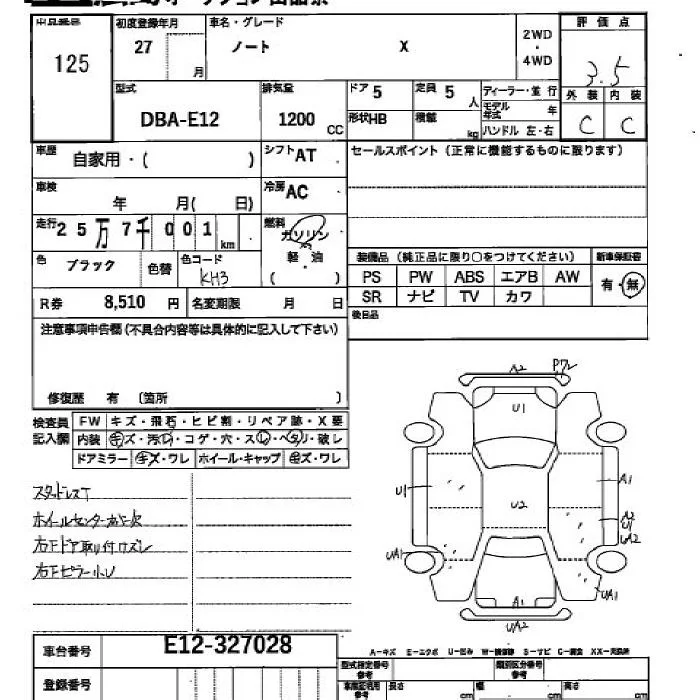 出品番号 初度登録年月 車名・グレード 2WD・4WD 評価点
125 27 月 ノート X 3.5
型式 排気量 ドア 5 定員 5人 ディーラー・並行 外装 内装
DBA-E12 1200 CC 形状HB 積載 kg モデル年式 年 C C
ハンドル 左・右
車歴 自家用・( ) シフト AT セールスポイント(正常に機能するものに限ります)
車検 年 月( 日) 冷房 AC
走行 25万7千001 km 燃料 ガソリン
軽・油
( )
色 ブラック 色替 色コード KH3
装備品(純正品に限り○をつけてください) 新車保証書
PS PW ABS エアB AW 有・無
SR ナビ TV カワ
R券 8,510 円 名変期限 月 日
後日品
注意事項申告欄(不具合内容等は具体的に記入して下さい)
修復歴 有 (箇所 )
検査員記入欄 FW キズ・飛石・ヒビ割・リペア跡・X要
内装 キズ・汚レ・コゲ・穴・スレ・ベタリ・破レ
ドアミラー キズ・ワレ ホイール・キャップ キズ・ワレ
スタッドレスT
ホイールセンターカバー欠
右Fドア取り付けズレ
右Fピラー小U
A2
U1
U1
A1
U2
A2
U1
UA2
UA1
UA1
A1
UA2
A-キズ E-エクボ U-凹み W-補修跡 S-サビ C-腐食 XX-交換済
車台番号 E12-327028
型式指定番号 参考 類別区分番号 参考
登録番号 長さ cm 幅 cm 高さ cm